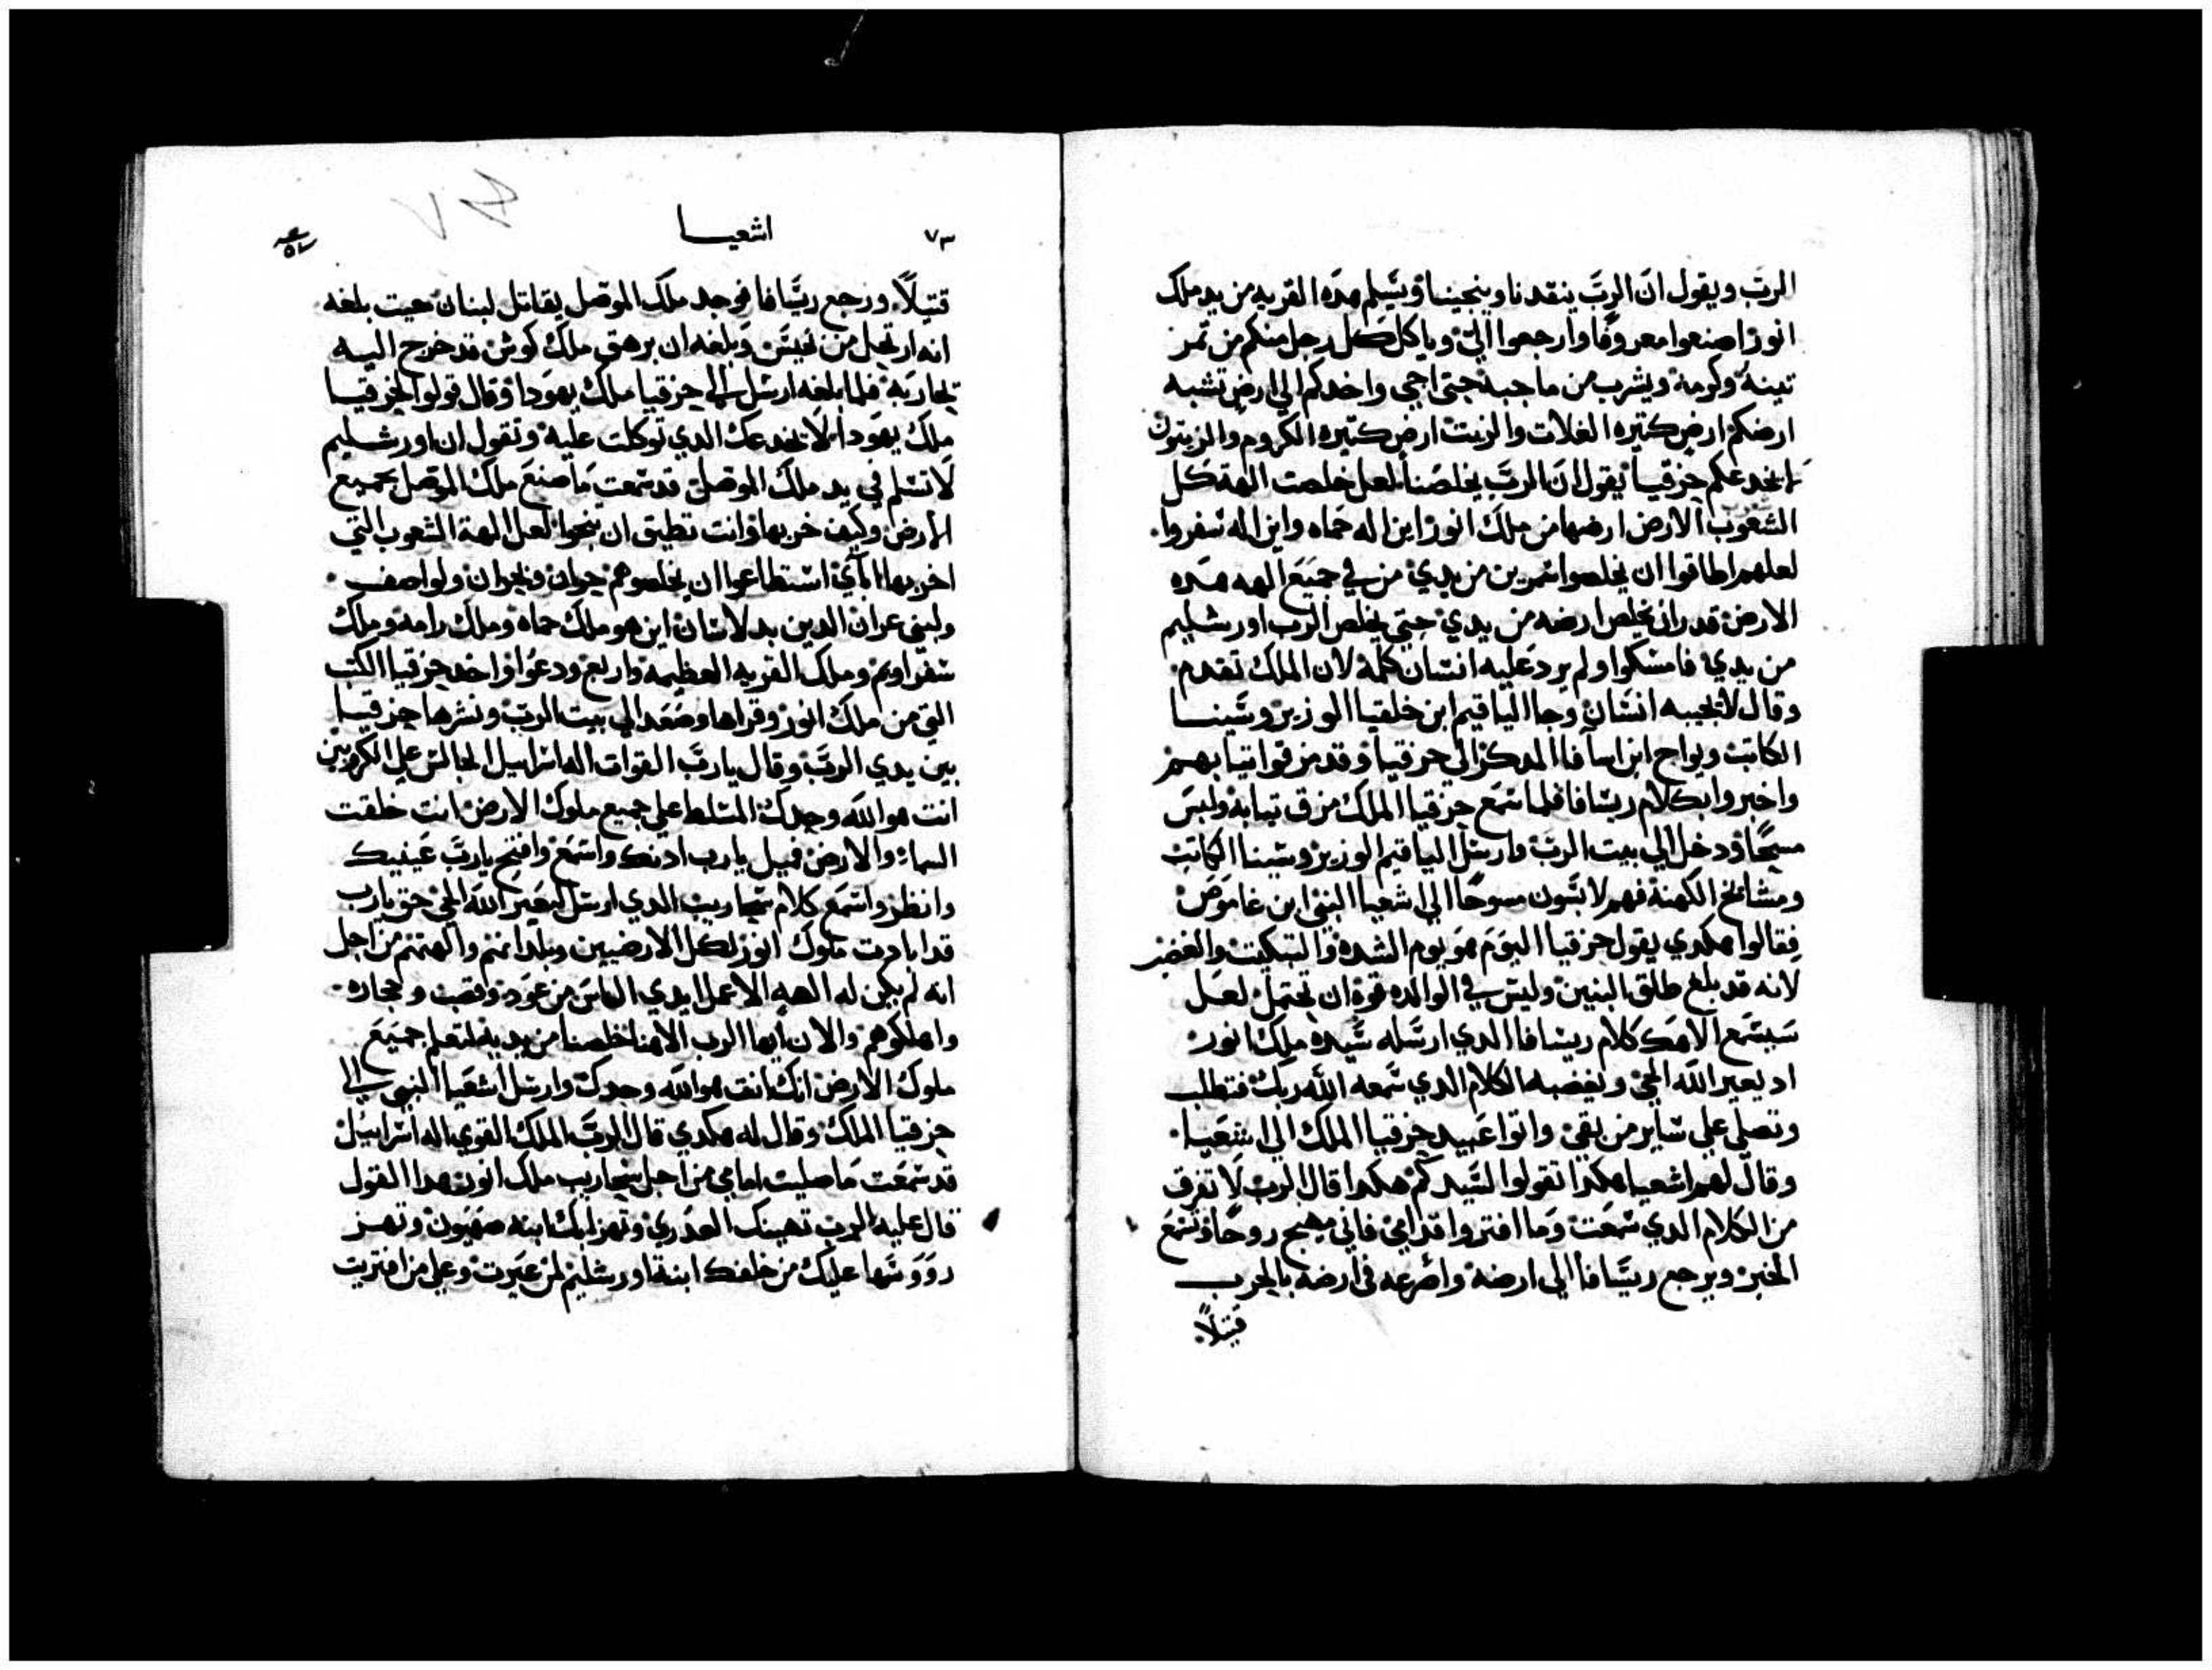 الرب ويقول ان الرب ينقدنا وينجينا ويسلم هده القريه من يد ملك
اتور اصنعوا معروفا وارجعوا الي وياكل كل رجل منكم من تمر
تينه وكرمه ويشرب من ماجبه حتي اجي واخدكم الي ارض تشبه
ارضكم ارض كتيره الغلات والزيت ارض كتيره الكروم والزيتون
لا يخدعكم حزقيا يقول ان الرب يخلصنا لعل خلصت الهة كل
الشعوب الارض ارضها من ملك اتور اين اله حماه واين اله سفروا.
لعلهم اطاقوا ان يخلصوا شمرين من يدي من في جميع الهه هده
الارض قدر ان يخلص ارضه من يدي حتي يخلص الرب اورشليم
من يدي فامسكوا ولم يرد عليه انسان كلمة لان الملك تقدم
وقال لا يجيبه انسان وجا الياقيم ابن خلقيا الوزير وشينا
الكاتب ويواح ابن اسافا المدكر الي حزقيا وقد مزقوا تيابهم
واخبروا بكلام ربشاقا فلما سمع حزقيا الملك مزق تيابه ولبس
مسحا ودخل الي بيت الرب وارسل الياقيم الوزير وشينا الكاتب
ومشايخ الكهنة فهم لابسون مسوحا الي اشعيا النبي ابن عاموص
فقالوا هكدي يقول حزقيا اليوم هو يوم الشده والتبكيت والغضب
لانه قد بلغ طلق البنين وليس في الوالده قوة ان تحتمل لعل
سيسمع الاهك كلام ربشاقا الدي ارسله سيده ملك اتور
اد يعير الله الحي ويغضبه الكلام الدي سمعه الله ربك فتطلب
وتصلي علي ساير من بقي واتوا عبيد حزقيا الملك الي اشعيا.
وقال لهم اشعيا هكدا تقولوا لسيدكم هكدا قال الرب لا تفرق
من الكلام الدي سمعت وما افتروا قدامي فاني مهيج روحا وتسمع
الخبر ويرجع ربشاقا الي ارضه واصرعه في ارضه بالحرب
قتيلا
٧٣ اشعيا
قتيلا. ورجع ربشاقا فوجد ملك الموصل يقاتل لبنان حيت بلغه
انه ارتحل من لخيس وبلغه ان ترهق ملك كوش قد خرج اليه
لحاربه فلما بلغه ارسل الي حزقيا ملك يهودا وقال قولوا لحزقيا
ملك يهودا لا يخدعك الدي توكلت عليه وتقول ان اورشليم
لا تسلم في يد ملك الموصل قد سمعت ما صنع ملك الموصل بجميع
الارض وكيف خربها وانت تطيق ان تنجوا لعل الهة الشعوب التي
اخربها اباي استطاعوا ان يخلصوهم جوان وحران ولواصف.
ولبني عران الدين بدلاسان اين هو ملك حماه وملك رامه وملك
سفراويم وملك القريه العظيمه واربع ودعوا واخد حزقيا الكتب
التي من ملك اتور وقراها وصعد الي بيت الرب ونشرها حزقيا
بين يدي الرب وقال يا رب القوات اله اسراييل الجالس علي الكروبين
انت هو الله وحدك المسلط علي جميع ملوك الارض انت خلقت
السما والارض فميل يا رب ادنك واسمع وافتح يا رب عينيك
وانظر واسمع كلام سنحاريب الدي ارسل ليعير الله الحي حق يا رب
قد ابادت ملوك اتور لكل الارضيين وبلدانهم والهتهم من اجل
انه لم يكن له الهه الا عمل ايدي الناس من عود وقصب وحجاره
واهلكوهم والان ايها الرب الاهنا خلصنا من يديه لتعلم جميع
ملوك الارض انك انت هو الله وحدك وارسل اشعيا النبي الي
حزقيا الملك وقال له هكدي قال الرب الملك القوي اله اسراييل
قد سمعت ما صليت امامي من اجل سنحاريب ملك اتور هدا القول
قال عليه الرب تهينك العدري وتهزا بك ابنه صهيون وتهز
رووسها عليك من خلفك ابنة اورشليم لمن عيرت وعلي من افتريت